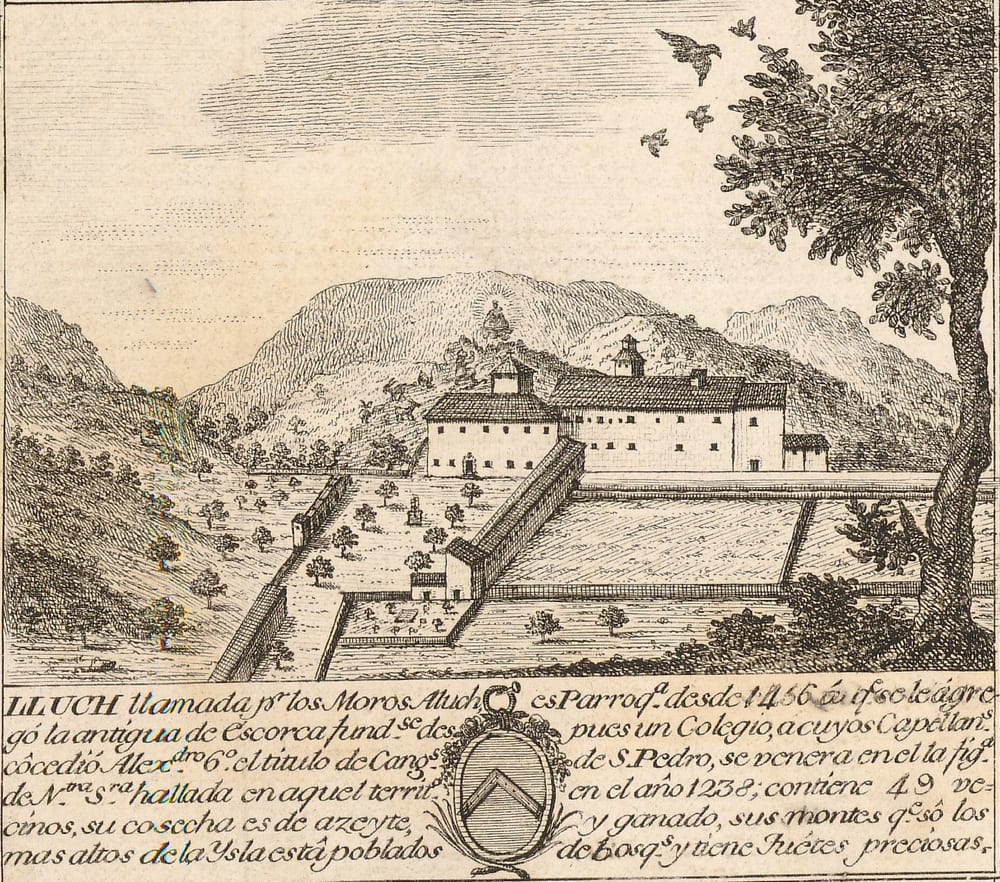 LLUCH llamada pr. los Moros Aluch es Parroqa. desde 1456 á qe. se le ágre
gó la antigua de Escorca fund.se des pues un Colegio, a cuyos Capellans.
côcedió Alex.dro 6º. el titulo de Cangs. de S. Pedro, se venera en el la figa.
de N.tra S.ra hallada en aquel territ.o en el año 1238; contiene 49 ve=
cinos, su cosecha es de azeyte, y ganado, sus montes qe. sô los
mas altos de la Ysla estâ poblados de bosqs. y tiene Fuétes preciosas.